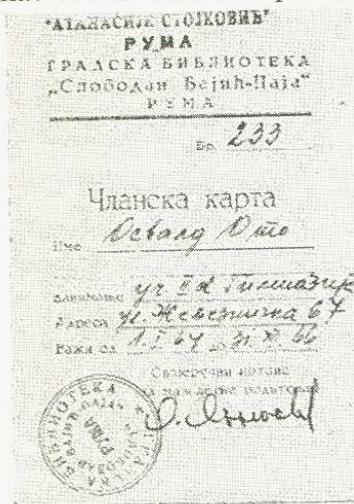 "АТАНАСИЈЕ СТОЈКОВИЋ"
РУМА
ГРАДСКА БИБЛИОТЕКА
„Слободан Бајић-Паја“
РУМА
Бр. 233
Чланска карта
Име Освалд Ото
занимање уч II d Гимназије
Адреса ул. Железничка 67
Важи од 1. I 64 до 31 XII. 66
Својеручни потпис
РУМА